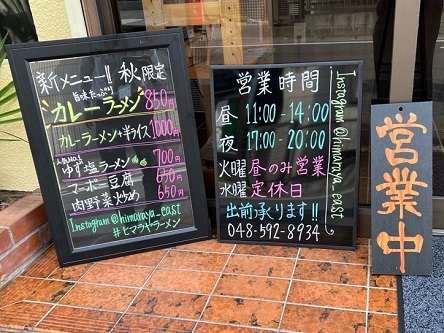 新メニュー!! 秋限定
旨味たっぷり
カレーラーメン 850円
カレーラーメン+半ライス 1000円
人気No.1
ゆず塩ラーメン 700円
マーボー豆腐 670円
肉野菜炒め 650円
Instagram@himaraya_east
#ヒマラヤラーメン
営業時間
昼 11:00-14:00
夜 17:00-20:00
火曜 昼のみ営業
水曜 定休日
出前承ります!!
048-592-8934
Instagram@himaraya_east
営業中